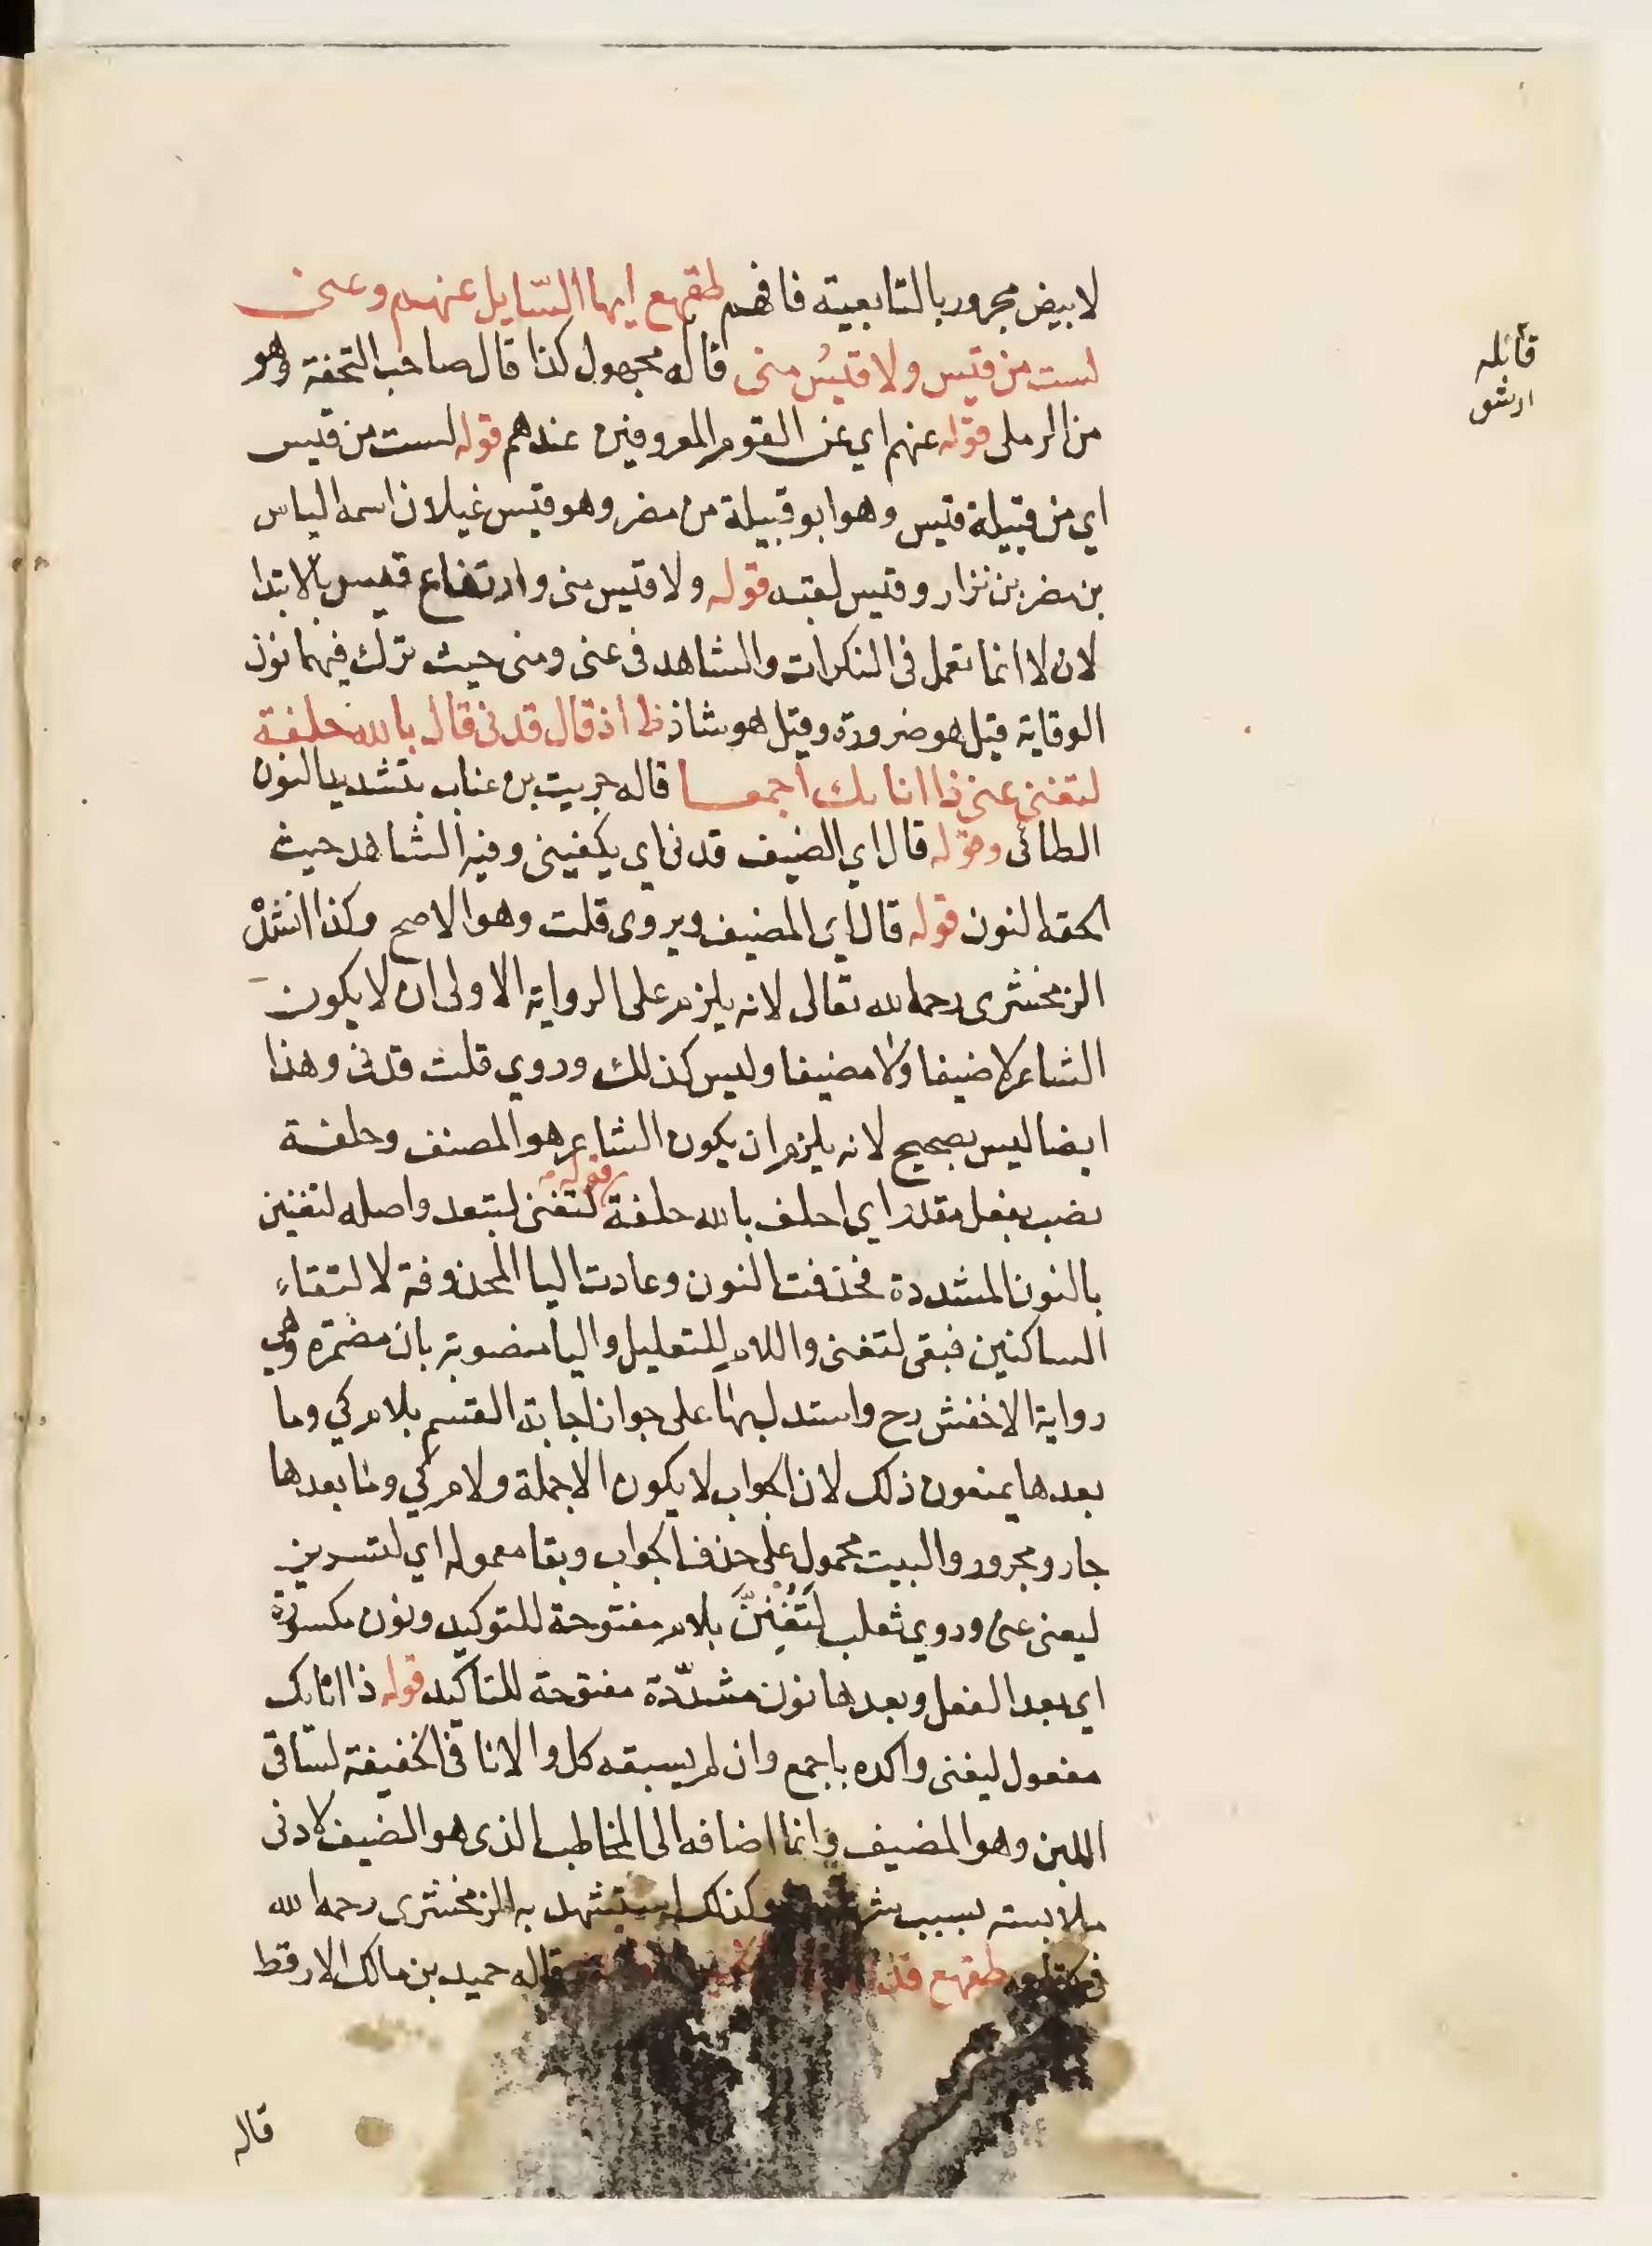 لابيض مجرور بالتابعية فافهم طقهع ايها السّايل عنهم وعنى
لست من قيس ولا قيسُ منى قاله مجهول كذا قال صاحب التحفة وهو
من الرملى قوله عنهم اي عن القوم المعروفين عندهم قوله لست من قيس
اي من قبيلة قيس وهو ابو قبيلة من مضر وهو قيس غيلان اسمه الياس
بن مضر بن نزار وقيس لقبه قوله ولا قيس منى وارتفاع قيس بالابتدا
لان لا انما تعمل فى النكرات والشاهد فى عنى ومنى حيث ترك فيهما نون
الوقاية قيل هو ضرورة وقيل هو شاذ ظ اذ قال قدنى قال بالله حلفة
لتغنى عنى ذا انابك اجمعا قاله حريث بن عناب بتشديد النون
الطائى وقوله قال اي الضيف قدنى اي يكفينى وفيه الشاهد حيث
الحقه النون قوله قال اى المضيف ويروى قلت وهو الاصح وكذا انشده
الزمخشرى رحمه الله تعالى لانه يلزم على الرواية الاولى ان لا يكون
الشاعر لا ضيفا ولا مضيفا وليس كذلك وروي قلت قدنى وهذا
ايضا ليس بصحيح لانه يلزم ان يكون الشاعر هو المصنف وحلفة
نصب بفعل مقدر اي احلف بالله حلفة قوله لتغنى لتبعد واصله لتغنين
بالنون المشددة فحذفت النون وعادت اليا المحذوفة لالتقاء
الساكنين فبقى لتغنى واللام للتعليل واليا منصوبة بان مضمرة وهي
رواية الاخفش رح واستدل بها على جواز اجابة القسم بلام كي وما
بعدها يمنعون ذلك لان الجواب لا يكون الا جملة ولام كي وما بعدها
جار ومجرور والبيت محمول على حذف الجواب وبقا معموله اي لتسربن
ليغنى عنى وروي ثعلب لَتُغْنِنَّ بلام مفتوحة للتوكيد ونون مكسورة
اي بعد الفعل وبعدها نون مشدّدة مفتوحة للتاكيد قوله ذا انابك
مفعول ليغنى واكده باجمع وان لم يسبقه كل والانا فى الحفيفة لساقى
اللبن وهو المضيف وانما اضافه الى المخاطب الذى هو الضيف لادنى
ملابسته بسبب وكذلك استشهد به الزمخشرى رحمه الله
طقهع قد قاله حميد بن مالك الارقط
قاله
قائله
ارشو